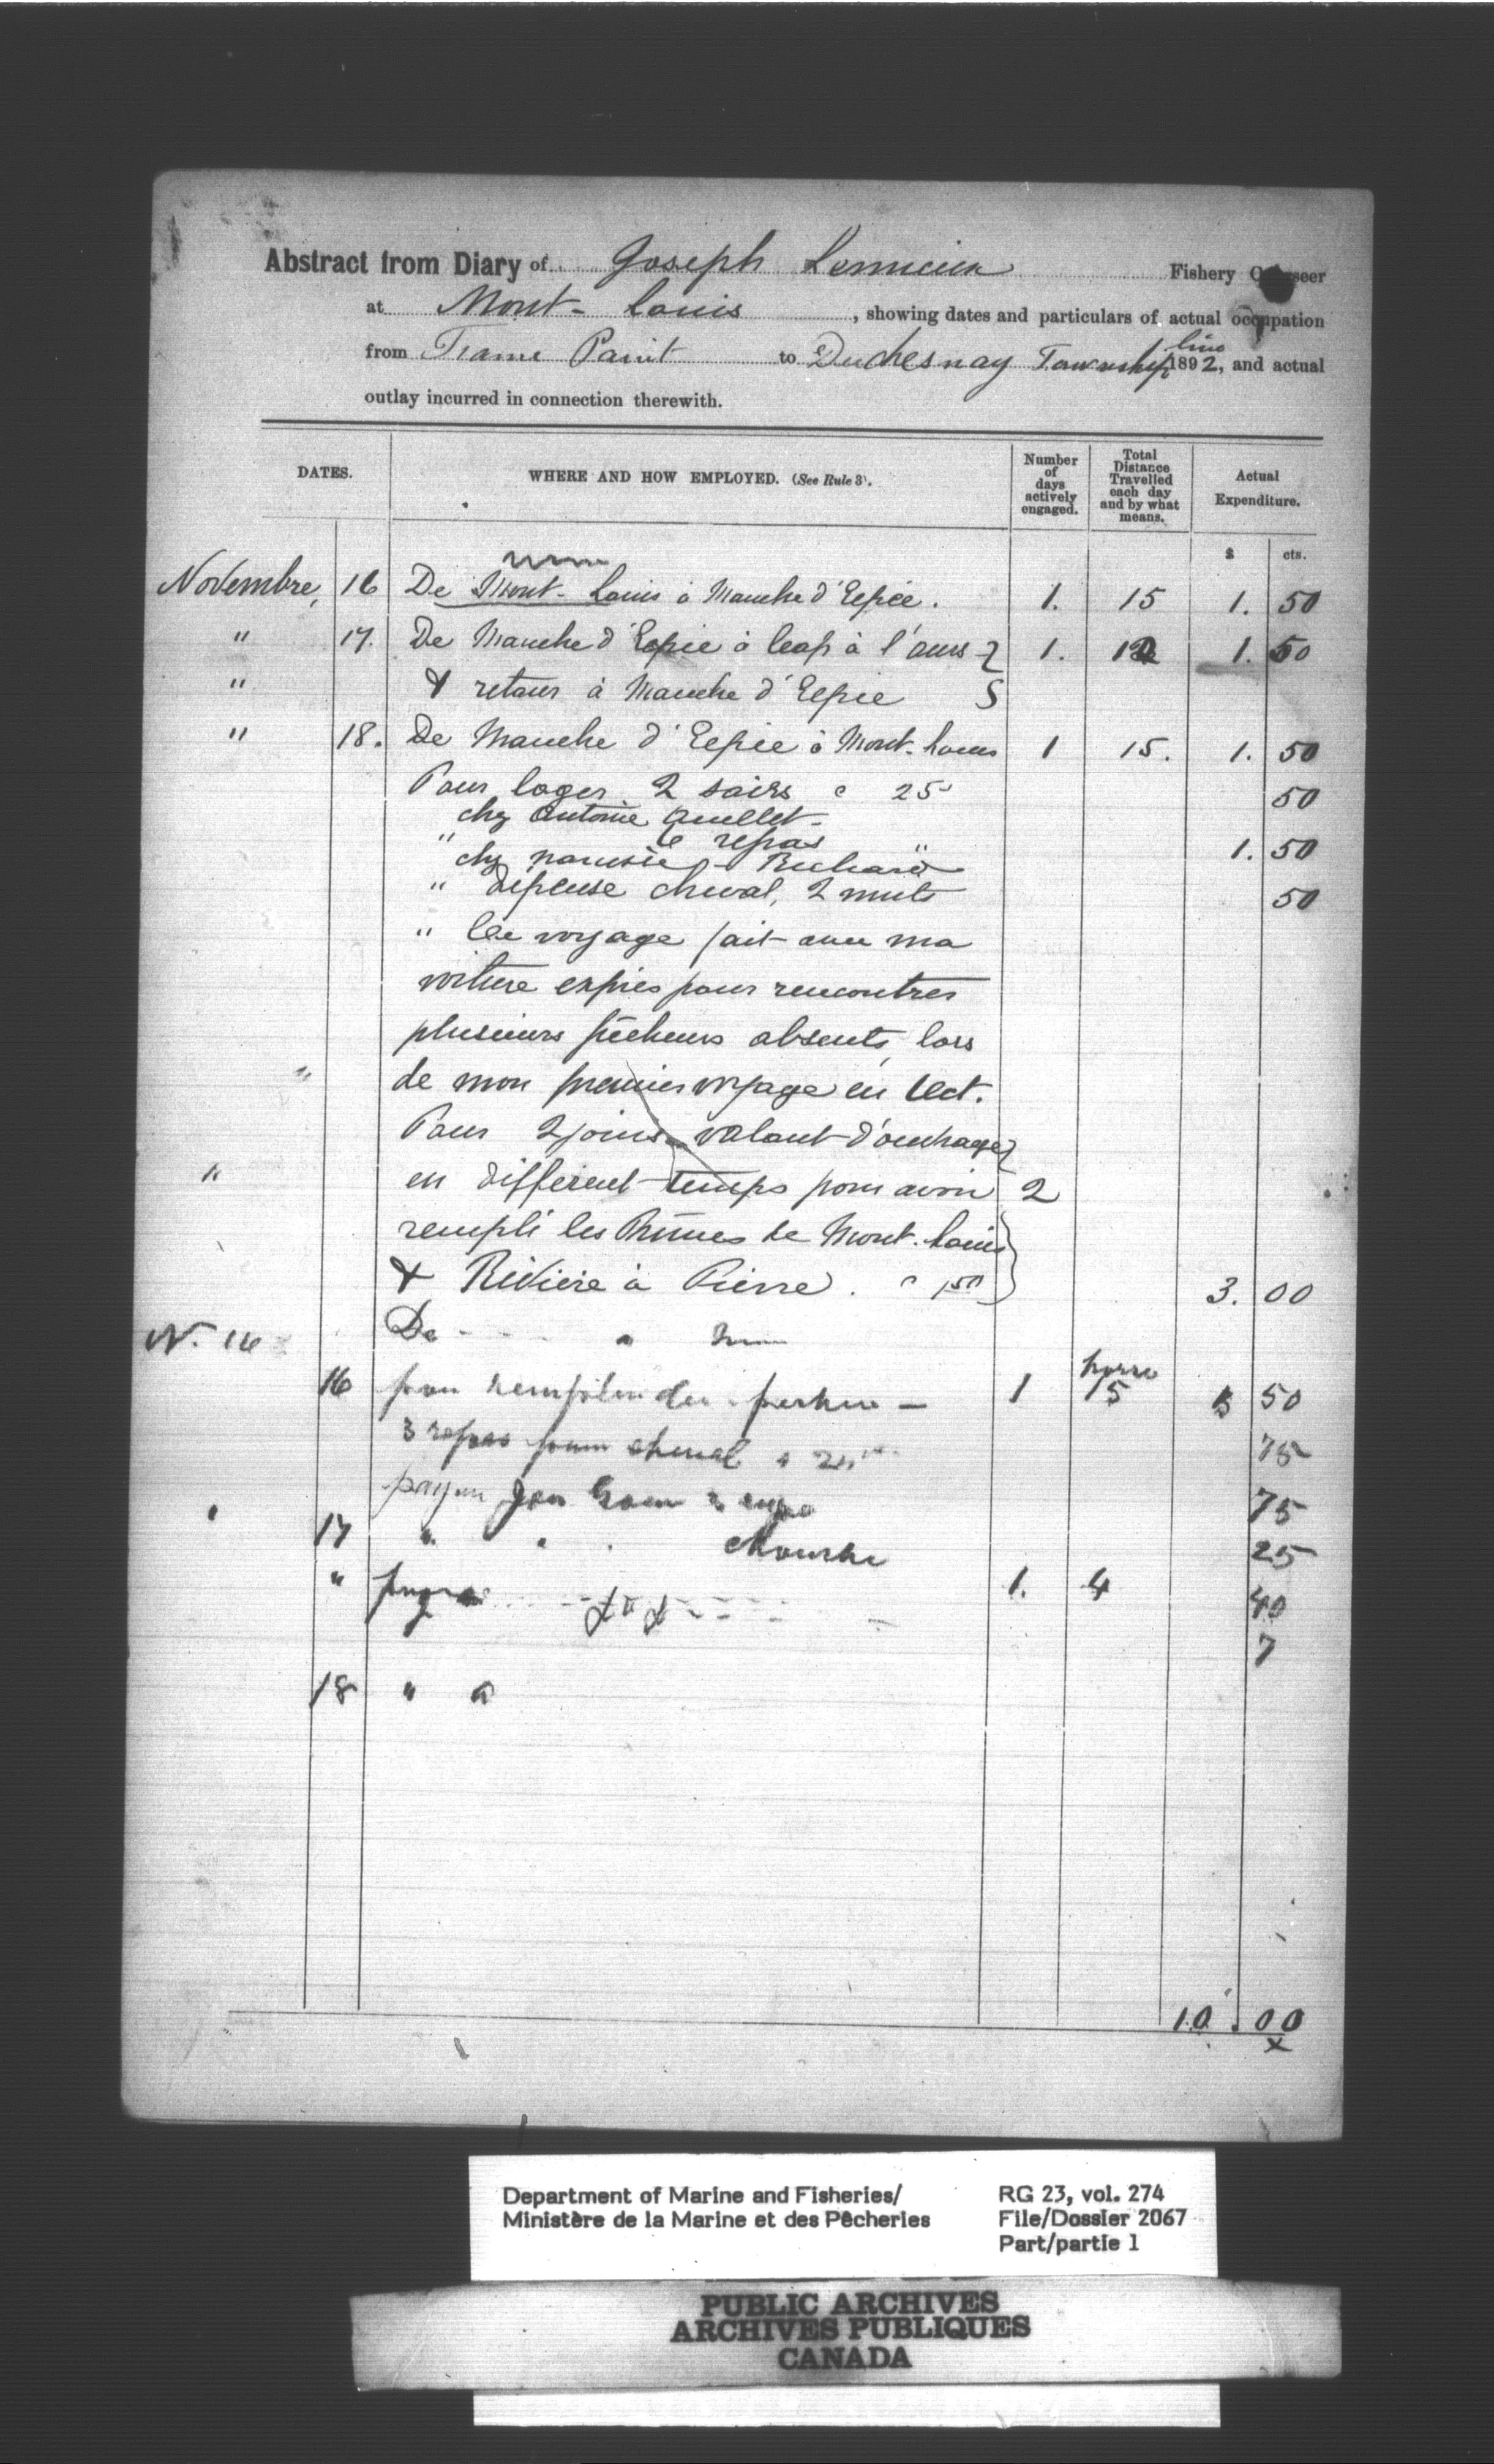 Abstract from Diary of Joseph Lemieux Fishery Overseer
at Mont-Louis, showing dates and particulars of actual occupation
from Frame Point to Duchesnay Township line 1892, and actual
outlay incurred in connection therewith.
DATES. WHERE AND HOW EMPLOYED. (See Rule 3). Number of days actively engaged. Total Distance Travelled each day and by what means. Actual Expenditure.
$ cts.
Novembre, 16 De Mont-Louis à Manche d'Epée. 1. 15 1. 50
" 17. De Manche d'Epée à Cap à l'ours 1. 12 1. 50
" & retour à Manche d'Epée
" 18. De Manche d'Epée à Mont-Louis 1 15. 1. 50
Pour loger 2 soirs " 25 50
chez Antoine Ouellet
" 6 repas " 1. 50
chez Narcisse Richard
" dépense cheval, 2 nuits 50
" Ce voyage fait avec ma
voiture exprès pour rencontrer
plusieurs pêcheurs absents, lors
" de mon premier voyage en Oct.
Pour 2 jours valant d'ouvrage
" en différent temps pour avoir 2
rempli les Primes de Mont-Louis
& Rivière à Pierre. " 1.50 3. 00
De
N. 16
horse
16 pour 1 15 50
3 repas pour cheval 75
75
17 " " Manche 25
" 1. 4 40
7
18 " à
10.00
x
Department of Marine and Fisheries/
Ministère de la Marine et des Pêcheries
RG 23, vol. 274
File/Dossier 2067
Part/partie 1
PUBLIC ARCHIVES
ARCHIVES PUBLIQUES
CANADA